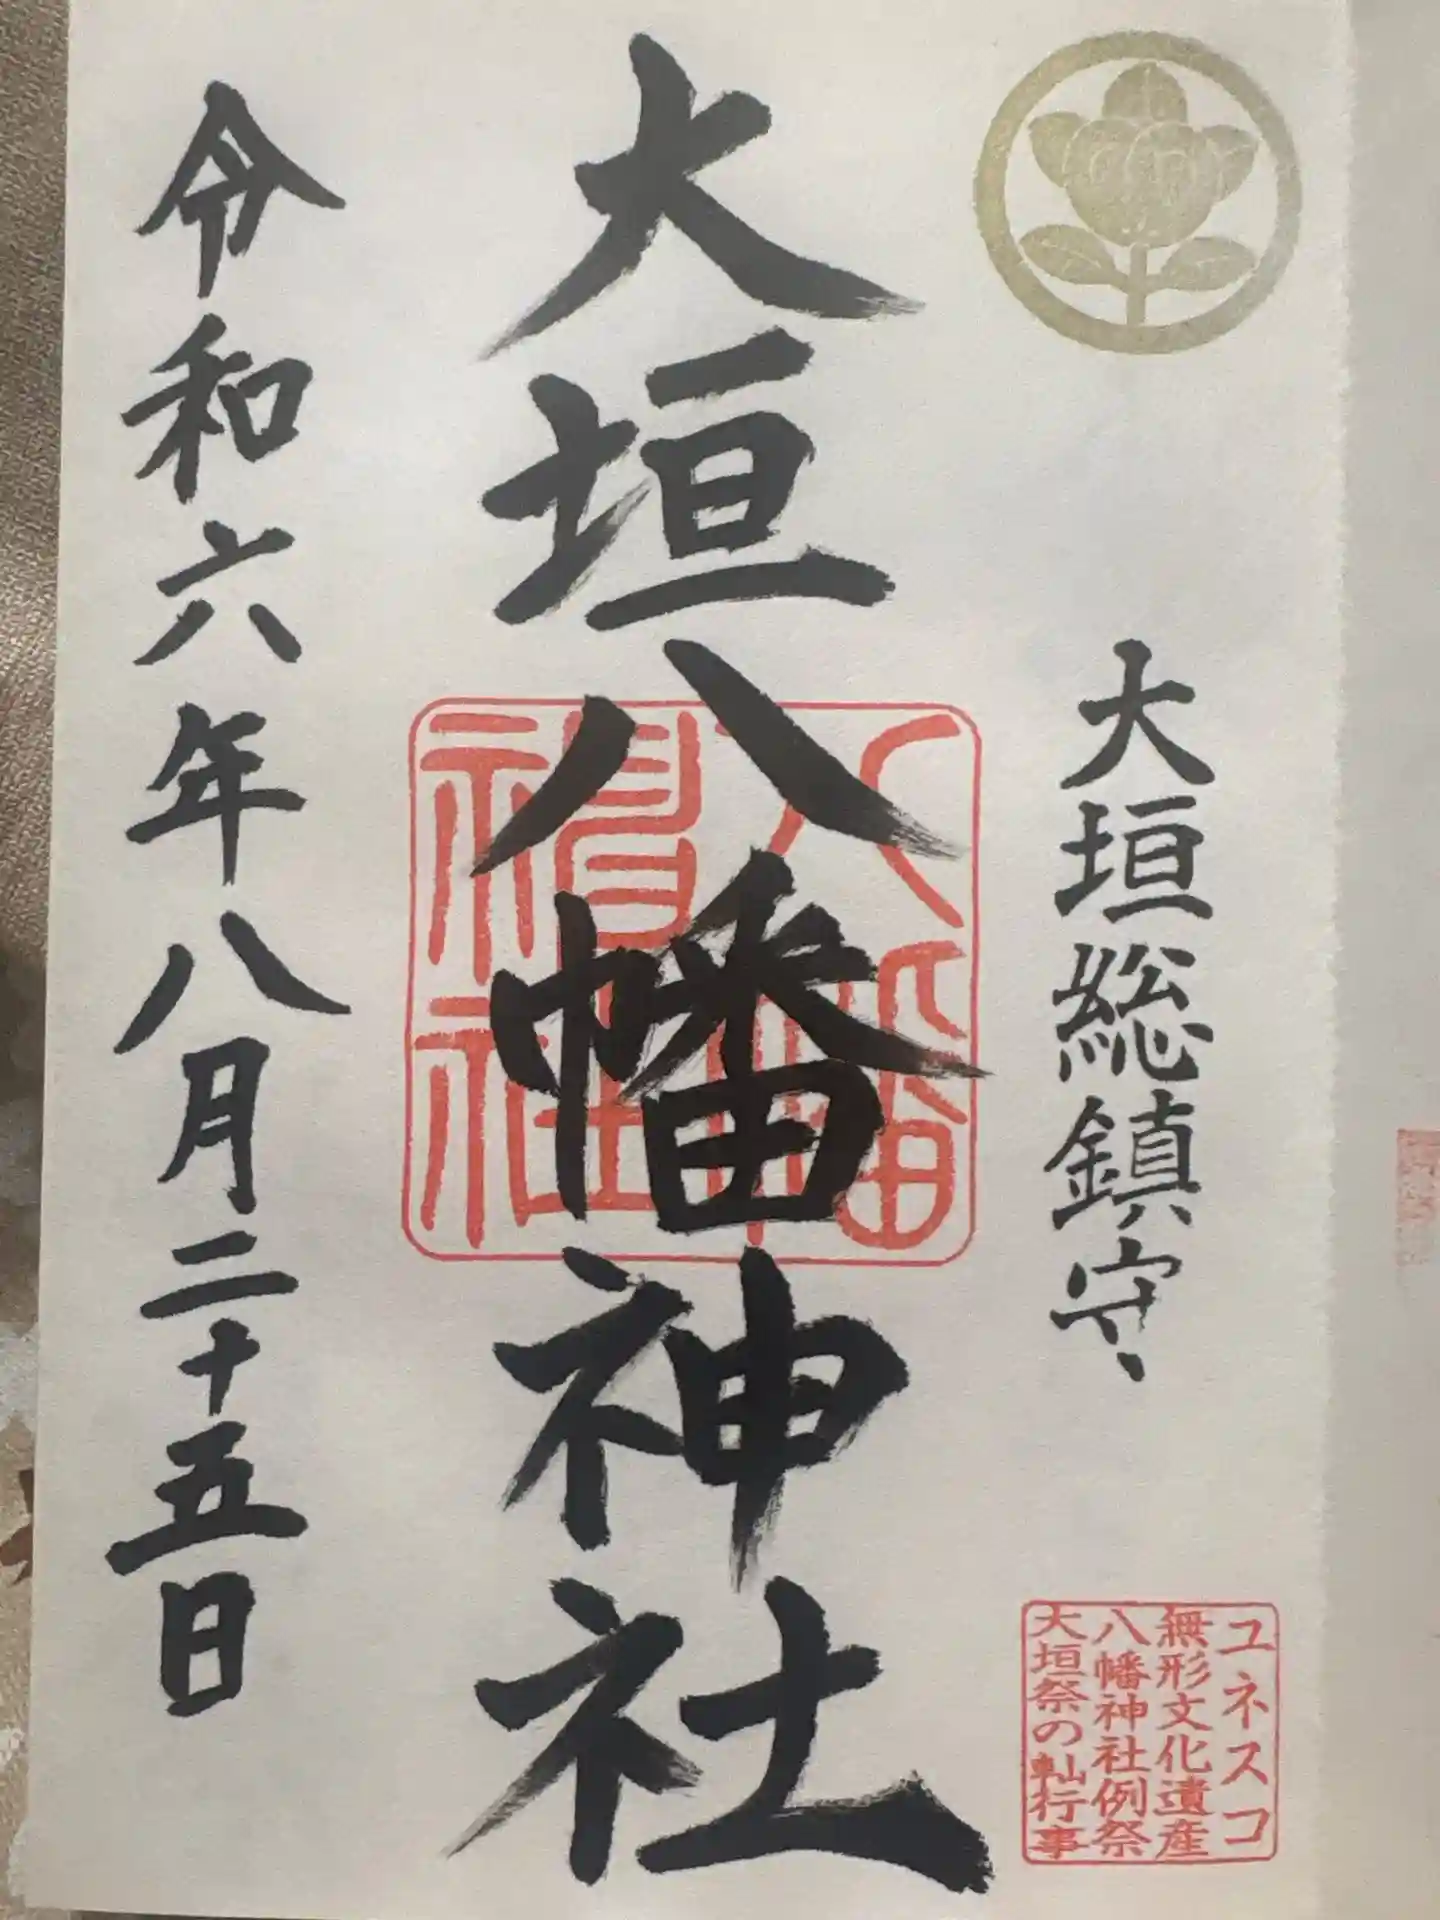 大垣総鎮守
ユネスコ
無形文化遺産
八幡神社例祭
大垣祭の軕行事
大垣八幡神社
八幡
神社
令和六年八月二十五日